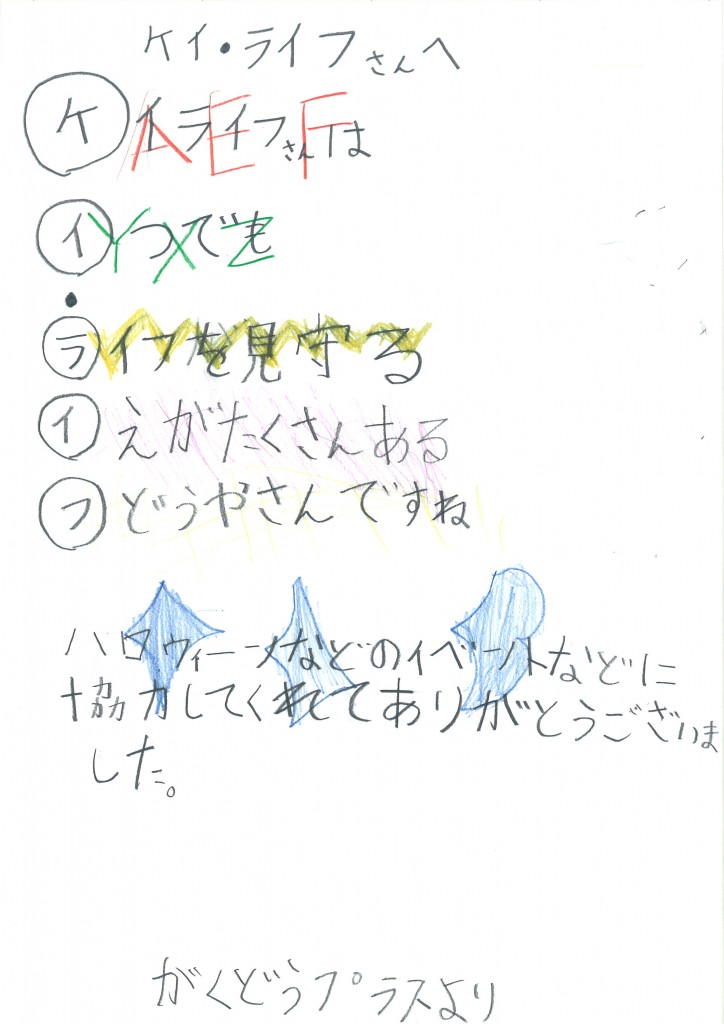 ケイ・ライフさんへ
ケイライフさんは
AEF
イつでも
YXZ
・
ライフを見守る
イえがたくさんある
フどうやさんですね
ハロウィーンなどのイベントなどに
協力してくれてありがとうございま
した。
がくどうプラスより